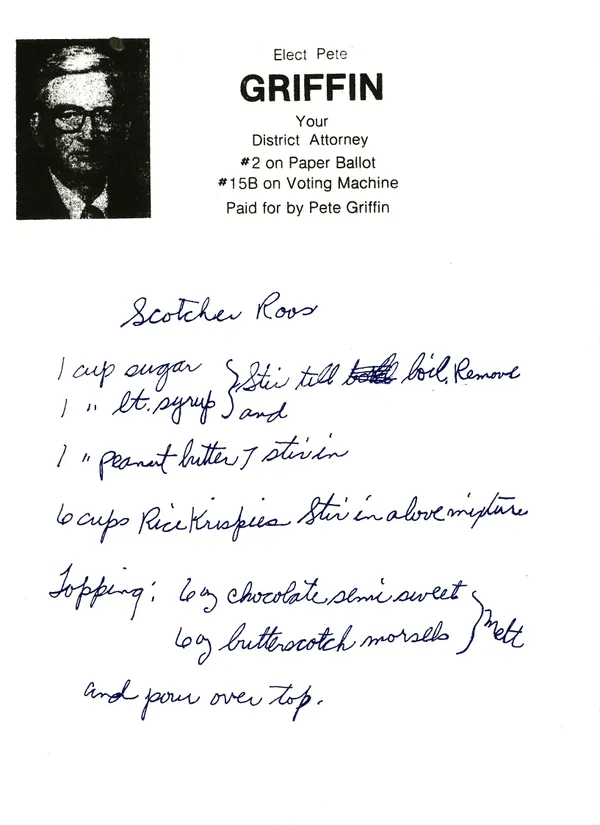 Elect Pete
GRIFFIN
Your
District Attorney
#2 on Paper Ballot
#15B on Voting Machine
Paid for by Pete Griffin
Scotcher Roos
1 cup sugar } Stir till boil. Remove
1 " lt. syrup } and
1 " peanut butter } stir in
6 cups Rice Krispies Stir in above mixture
Topping: 6 oz chocolate semi sweet
6 oz butterscotch morsels } Melt
and pour over top.